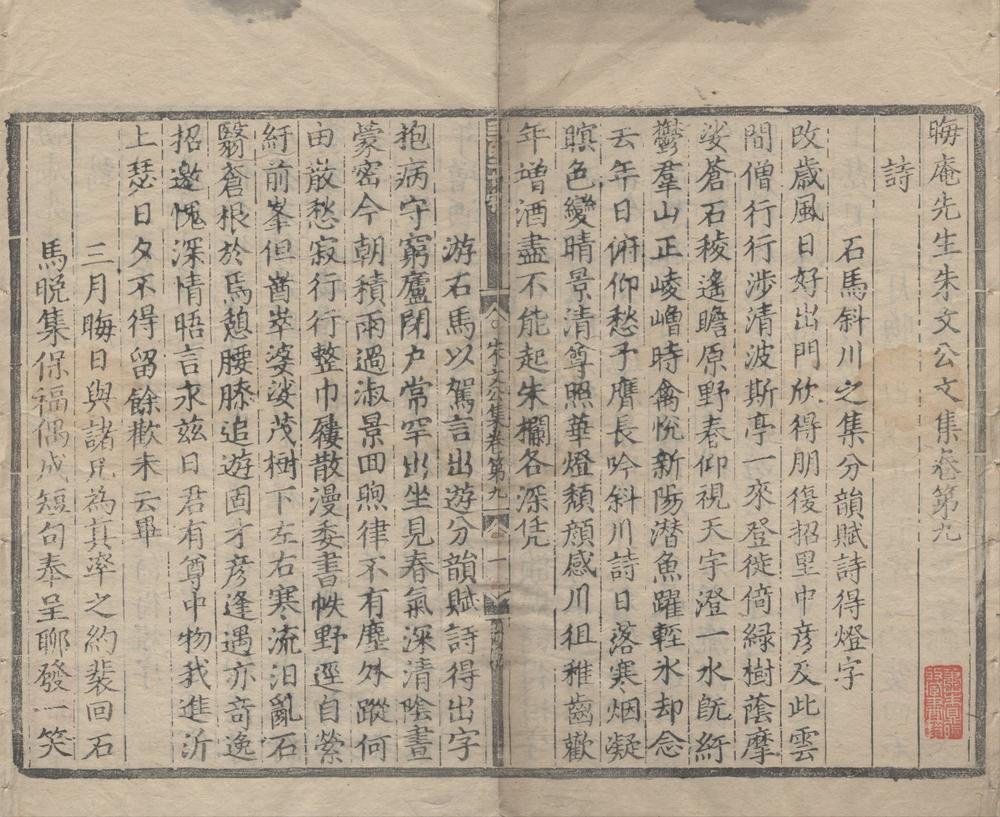 晦庵先生朱文公文集卷第九
詩
石馬斜川之集分韻賦詩得燈字
改歲風日好出門欣得朋復招里中彦及此雲
間僧行行涉清波斯亭一來登徙倚綠樹蔭摩
娑蒼石稜遙瞻原野春仰視天宇澄一水旣紆
鬱羣山正崚嶒時禽悅新陽潛魚躍輕冰却念
去年日俯仰愁予膺長吟斜川詩日落寒烟凝
暝色變晴景清尊照華燈頽顔感川徂稚齒歡
年增酒盡不能起朱欄各深凭
朱文公集卷第九
一
游石馬以駕言出遊分韻賦詩得出字
抱病守窮廬閉户常罕出坐見春氣深清陰晝
蒙密今朝積雨過淑景回煦律不有塵外蹤何
由散愁寂行行整巾屨散漫委書帙野逕自縈
紆前峯但崷崒婆娑茂樹下左右寒流汨亂石
翳蒼根於焉憩腰膝追遊固才彦逢遇亦竒逸
招邀愧深情晤言永兹日君有尊中物我進沂
上瑟日夕不得留餘歡未云畢
三月晦日與諸兄為真率之約裴回石
馬晚集保福偶成短句奉呈聊發一笑